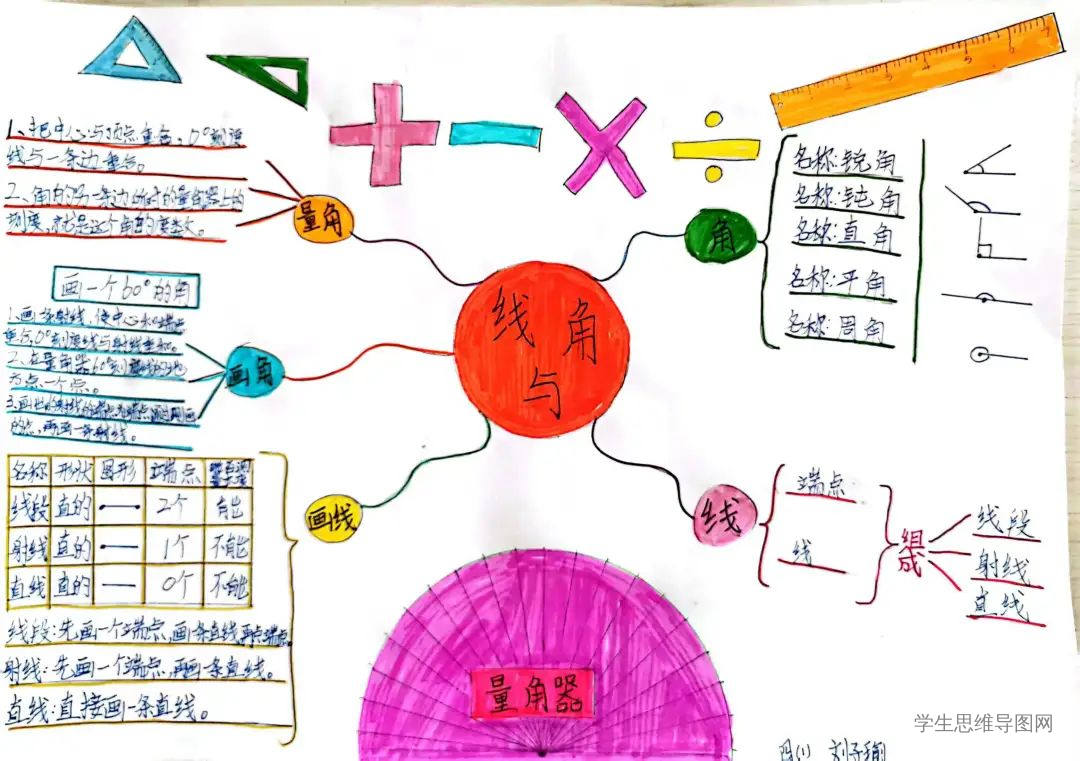 1、把中心与顶点重合、0°刻度
线与一条边重合。
2、角的另一条边所对的量角器上的
刻度,就是这个角的度数。
量角
画一个60°的角
1.画一条射线,使中心和端点
重合,0°刻度线与射线重和。
2、在量角器60°刻度线的地
方点一个点。
3.画出的射线的端点为端点,通过刚画
的点,再画一条射线。
画角
线与角
角
名称:锐角
名称:钝角
名称:直角
名称:平角
名称:周角
名称 形状 图形 端点
线段 直的 2个 能
射线 直的 1个 不能
直线 直的 0个 不能
画线
线段:先画一个端点,画条直线再点端点
射线:先画一个端点,再画一条直线。
直线:直接画一条直线。
线
端点
线
组成
线段
射线
直线
量角器
学生思维导图网
四(1)